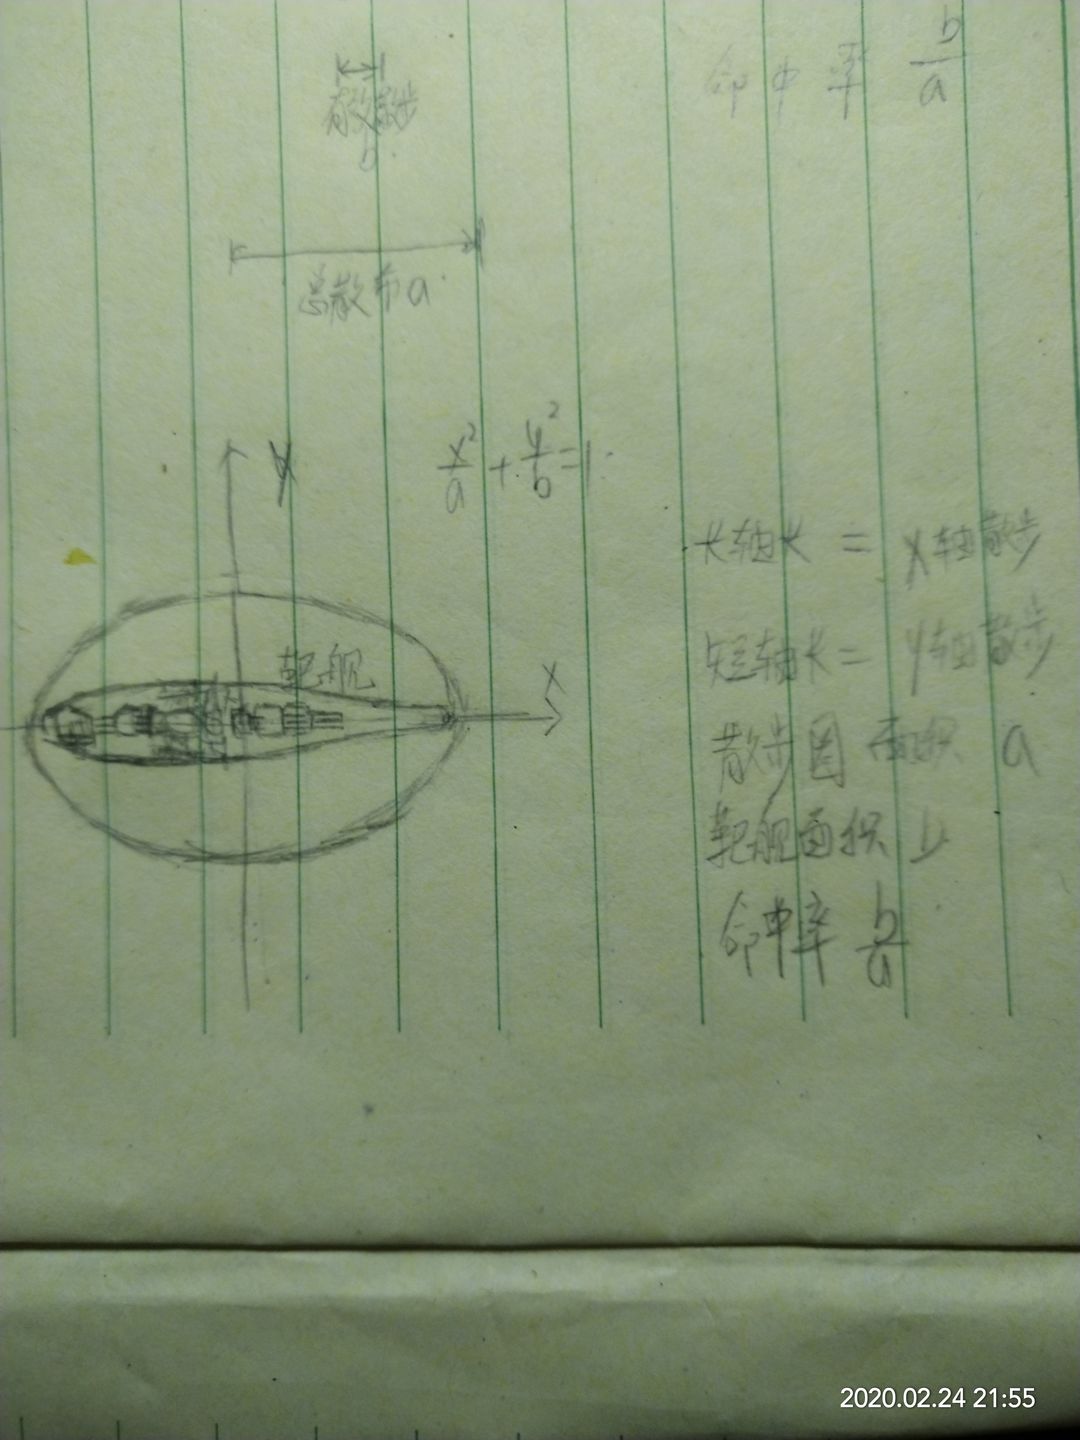 命中率 b/a
有效散步
b
总散布a
y
x²/a + y²/b = 1
靶舰
x
长轴长 = X轴散步
短轴长 = y轴散步
散步圆面积 a
靶舰面积 b
命中率 b/a
2020.02.24 21:55